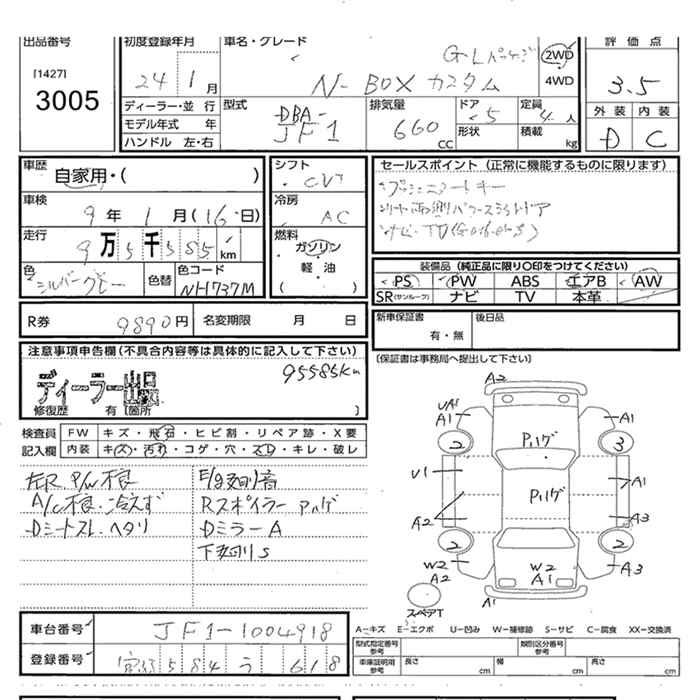 出品番号
[1427]
3005
初度登録年月
24 1月
車名・グレード
N-BOX カスタム
GLパッケージ
2WD
4WD
評価点
3.5
外装 内装
D C
ディーラー・並行
モデル年式 年
ハンドル 左・右
型式
DBA-
JF1
排気量
660 CC
ドア
5
形状
定員
4人
積載
kg
車歴
自家用・( )
車検
9年 1月(16日)
走行
9万5千585km
色
シルバーグレー
色替
色コード
NH737M
シフト
CVT
冷房
AC
燃料
ガソリン
軽・油
( )
セールスポイント (正常に機能するものに限ります)
プッシュスタートキー
ナビ・TV
装備品 (純正品に限り〇印をつけてください)
PS PW ABS エアB AW
SR(サンルーフ) ナビ TV 本革
R券 9890円 名変期限 月 日
新車保証書
有・無
後日品
(保証書は事務局へ提出して下さい)
注意事項申告欄(不具合内容等は具体的に記入して下さい)
95585Km
ディーラー出品
修復歴 有 [箇所 ]
検査員
記入欄
FW キズ・飛石・ヒビ割・リペア跡・X要
内装 キズ・汚れ・コゲ・穴・スレ・キレ・破レ
左R P/W不良
A/C不良・冷えず
Dシートスレ・ヘタリ
E/g異音
Rスポイラー ハゲ
DミラーA
下回りS
A2
UA1
A1
A1
2
3
Pハゲ
U1
Pハゲ
A1
A2
A3
2
2
W2
A2
W2
A1
A3
A1
スペアT
車台番号 JF1-1004918
登録番号 584 う 618
A―キズ E―エクボ U―凹み W―補修跡 S―サビ C―腐食 XX―交換済
型式指定番号
参考
類別区分番号
参考
車庫証明用
参考
長さ cm
幅 cm
高さ cm